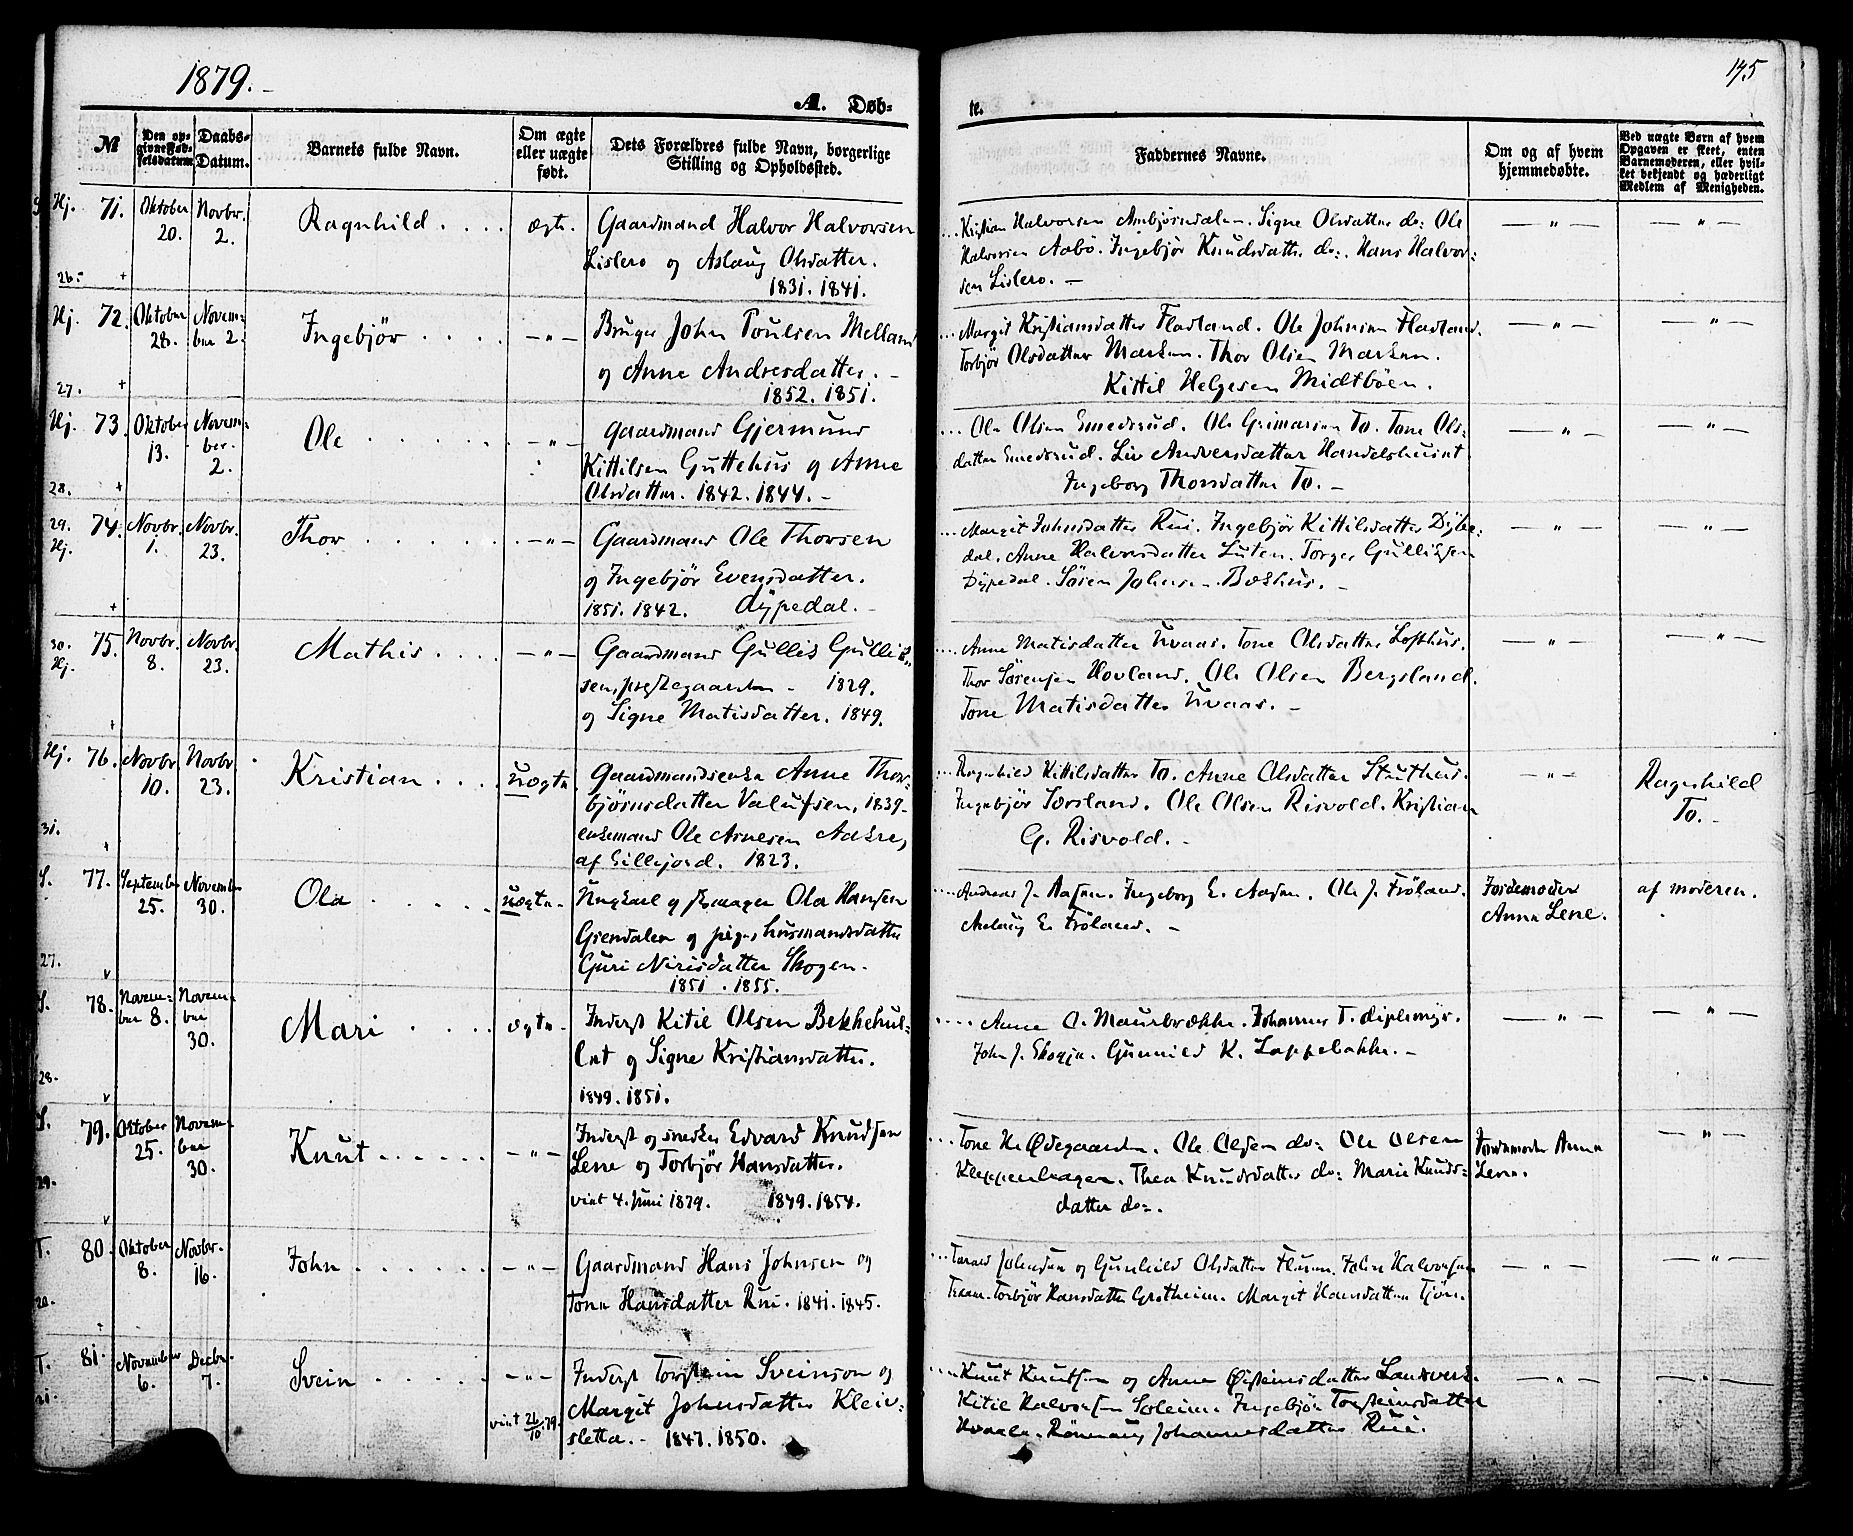 1879.
175
A. Døb-
te.
№
Den op-
givne Fød-
selsdatum.
Daabs-
Datum.
Barnets fulde Navn.
Om ægte
eller uægte
født.
Dets Forældres fulde Navn, borgerlige
Stilling og Opholdssted.
Faddernes Navne.
Om og af hvem
hjemmedøbte.
Ved uægte Børn af hvem
Opgaven er skeet, enten
Barnemoderen, eller hvil-
ket bekjendt og hæderligt
Medlem af Menigheden.
Hj. 71. Oktober 20. Novbr. 2. Ragnhild . . . . ægte.
Gaardmand Halvor Halvorsen
Lislero og Aslaug Olsdatter.
1831. 1841.
26.
Kristian Halvorsen Ambjørndalen. Signe Olsdatter do: Ole
Halvorsen Aabo. Ingebjør Knudsdatter do:. Hans Halvor-
sen Lislero. —
— " —
— " —
Hj. 72. Oktober 28. Novem- ber 2. Ingebjør . . . . — " —
Bruger John Poulsen Melland
og Anne Andresdatter. —
1852. 1851.
27.
Margit Kristiansdatter Fladland. Ole Johnsen Fladland.
Torbjør Olsdatter Marken. Thor Olsen Marken.
Kittil Helgesen Midtbøen.
— " —
— " —
Hj. 73. Oktober 13. Novem- ber. 2. Ole . . . . — " —
Gaardmand Gjermund
Kittilsen Guttehus og Anne
Olsdatter. 1842. 1844. —
28.
Ole Olsen Smedsrud. Ole Grimarsen To. Tone Ols-
datter Smedsrud. Liv Andersdatter
Ingeborg Thorsdatter To. —
— " —
— " —
29. Hj. 74. Novbr. 1. Novbr. 23. Thor . . . . — " —
Gaardmand Ole Thorsen
og Ingebjør Evensdatter.
1851. 1842. Dypedal. —
Margit Johnsdatter Rui. Ingebjør Kittilsdatter Dype-
dal. Anne Halvorsdatter Luten. Torger Gulliksen
Dypedal. Søren Johnsen Bøkhus. —
— " —
— " —
30. Hj. 75. Novbr. 8. Novbr. 23. Mathis . . . . — " —
Gaardmand Gullik Gullik-
sen, præstegaarden — 1829.
og Signe Matisdatter. 1849.
Anne Matisdatter Kvaas. Tone Olsdatter Lofthus.
Thor Sørensen Hovland. Ole Olsen Bergsland.
Tone Matisdatter Kvaas. —
— " —
— " —
Hj. 76. Novbr. 10. Novbr. 23. Kristian . . . uægte.
Gaardmandsenke Anne Thor-
bjørnsdatter Valufsen, 1839-
enkemand Ole Arnesen Aakre,
af Gillejord. 1823.
31.
Ragnhild Kittilsdatter To. Anne Olsdatter Stuthus.
Ingebjør Sorsland. Ole Olsen Risvold. Kristian
G. Risvold. —
— " —
Ragnhild
To. —
S. 77. September 25. November 30. Ola . . . . . uægte.
Ungkarl og Ola Hansen
Grendalen og pige, husmandsdatter
Guri Nirisdatter Skogen.
1851. 1855.
27.
Andreas J. Aasen. Ingeborg E. Aasen. Ole J. Frøland.
Aslaug E. Frøland. —
Jordemoder
Anne Lene.
af moderen.
S. 78. Novem- ber 8. Novem- ber 30. Mari . . . . ægte.
Inderst Kitil Olsen Bekkehul-
let og Signe Kristiansdatter.
1849. 1851.
28.
Anne O. Maurbrække. Johannes T. Diplemyr.
John J. Skogja. Gunnild K. Lappebakke. —
— " —
— " —
S. 79. Oktober 25. Novem- ber 30. Knut . . . . . . — " —
Inderst og snedker Edvard Knudsen
Lene og Torbjør Hansdatter.
viet 4. Juni 1879. 1849. 1854.
29.
Tone H. Ødegaarden. Ole Olsen do: Ole Olsen
Kleppenhagen. Thea Knudsdatter do: Marie Knuds-
datter do:.
Jordemoder Anne
Lene.
— " —
T. 80. Oktober 8. Novbr. 16. John . . . . . . — " —
Gaardmand Hans Johnsen og
Tone Hansdatter Rui. 1841. 1845.
20.
Tarald Johnsen og Gunhild Olsdatter John Halvorsen
Traen. Torbjør Hansdatter Grotheim. Margit Hansdatter Tjøn.
— " —
— " —
T. 81. November 6. Decbr. 7. Svein . . . . . — " —
viet 26/10 79.
Inderst Torstein Sveinson og
Margit Johnsdatter Kleiv-
sletta. — 1847. 1850.
Knut Knutsen og Anne Øisteinsdatter Landverk.
Kitil Halvorsen Soleim. Ingebjør Torsteinsdatter
Hvaale. Rønnaug Johannesdatter Rui.
— " —
— " —